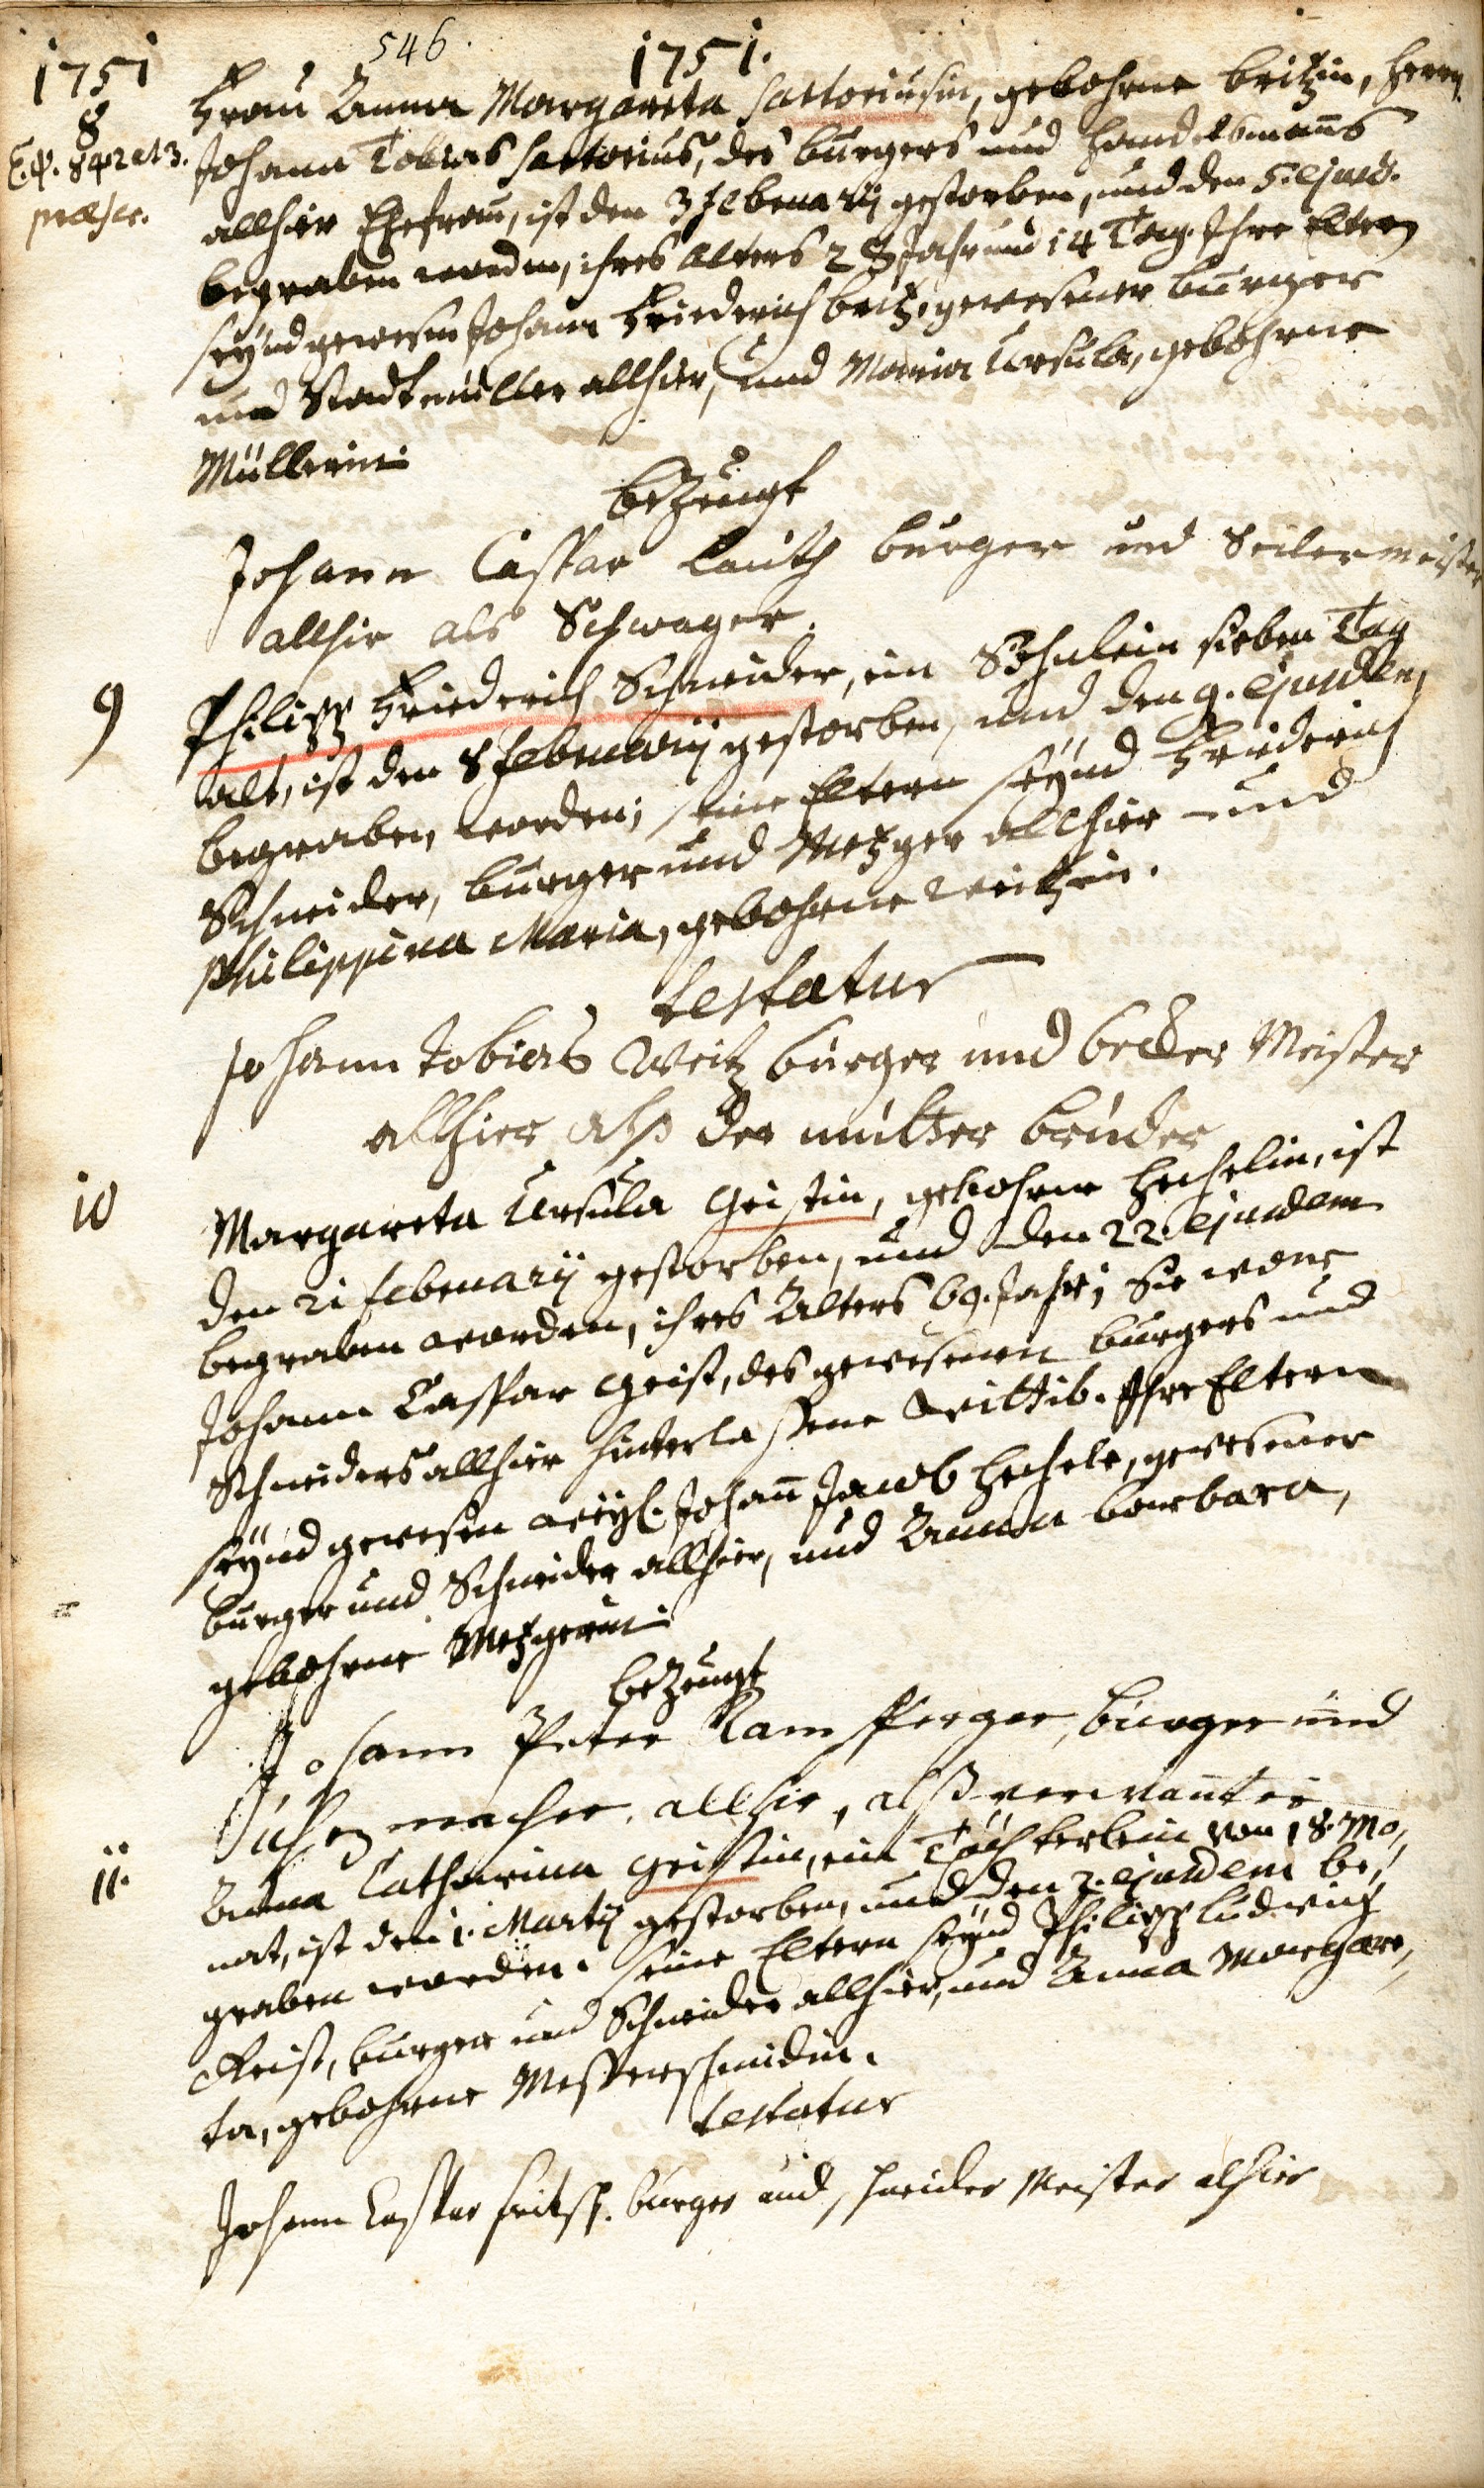 546.
1751
1751.
8
Frau Anna Margareta Sartoriusin, gebohrne britzin, Herrn
Johann Tobias Sartorius, des burgers und Handelsmanns
allhier Ehefrau, ist den 3 Februarij gestorben, und den 5. ejusd.
begraben worden, ihres Alters 28 Jahr und 14 Tag. Ihre Eltern
seynd gewesen Johann Friederich britz, gewesener burger
und Stadtmüller allhier, und Maria Ursula, gebohrne
Müllerin.
bezeugt
Johann Caspar Lauth burger und Seilermeister
allhie als Schwager.
9
Philipp Friederich Schneider, ein Söhnlein sieben Tag
alt, ist den 8 Februarij gestorben, und den 9. ejusdem
begraben worden; seine Eltern seynd Friederich
Schneider, burger und Metzger allhier und
Philippina Maria, gebohrne Weitzin.
testatur
Johann Tobias Weitz burger und becker Meister
allhier alß der mutter bruder
10
Margareta Ursula Geistin, gebohrne Hechelin, ist
den 21 februarij gestorben, und den 22. ejusdem
begraben worden, ihres Alters 69. Jahr; Sie ware
Johann Caspar Geist, des gewesenen burgers und
Schneiders allhier hinterlassene Wittib. Ihre Eltern
seynd gewesen weyl. Johann Jacob Hechele, gewesener
burger und Schneider allhier, und Anna barbara,
gebohrne Metzgerin.
bezeugt
Johann Peter Ramsperger, burger und
macher allhie, alß verwanter
11.
Anna Catharina Geistin, ein Töchterlein von 18. Mo,
nat, ist den 1. Martij gestorben, und den 2. ejusdem be,
graben worden. Seine Eltern seynd Philipp Ludwig
Geist, burger und Schneider allhier, und Anna Margare,
ta, gebohrne Messerschmidin.
testatur
Johann Caspar burger und schneider Meister alhier